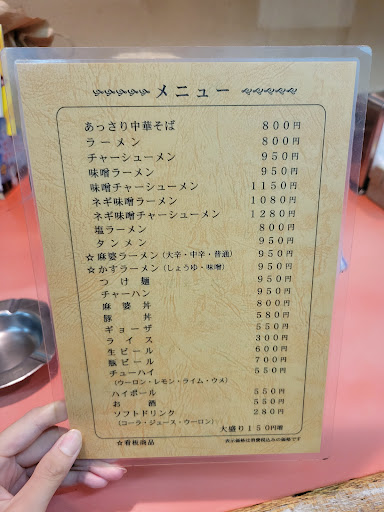 メニュー
あっさり中華そば 800円
ラーメン 800円
チャーシューメン 950円
味噌ラーメン 950円
味噌チャーシューメン 1150円
ネギ味噌ラーメン 1080円
ネギ味噌チャーシューメン 1280円
塩ラーメン 800円
タンメン 950円
☆麻婆ラーメン(大辛・中辛・普通) 950円
☆かすラーメン(しょうゆ・味噌) 950円
つけ麺 950円
チャーハン 950円
麻婆丼 800円
豚丼 580円
ギョーザ 550円
ライス 300円
生ビール 600円
瓶ビール 700円
チューハイ 550円
(ウーロン・レモン・ライム・ウメ)
ハイボール 550円
お酒 550円
ソフトドリンク 280円
(コーラ・ジュース・ウーロン)
大盛り150円増
☆看板商品
表示価格は消費税込みの価格です